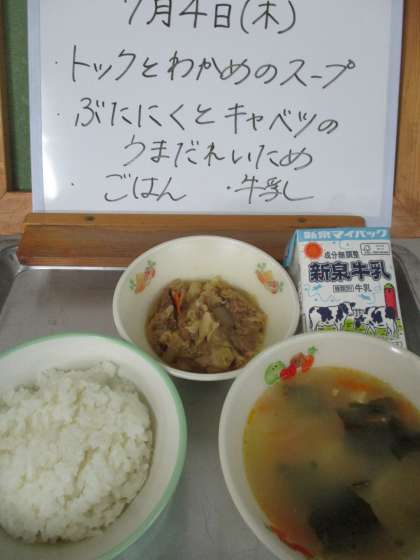 7月4日(木)
・トックとわかめのスープ
・ぶたにくとキャベツの
うまだれいため
・ごはん ・牛乳
新泉マイパック
成分無調整
新泉牛乳
種類別 牛乳